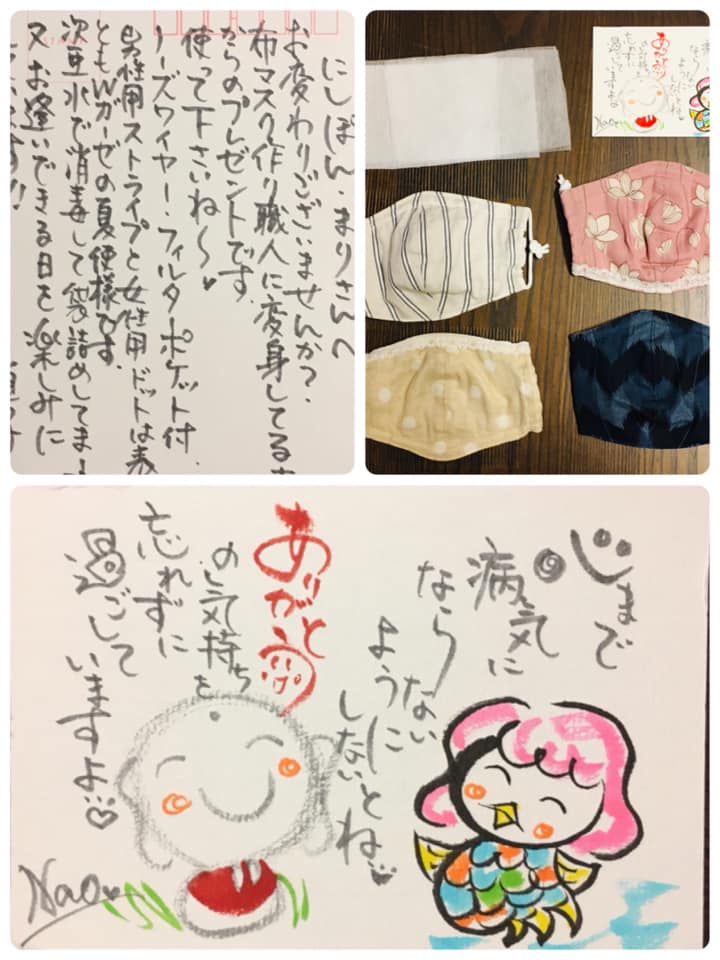 にしぽん・まりさんへ
お変わりございませんか?
布マスク作り職人に変身してる
からのプレゼントです。
使って下さいね〜♥
ノーズワイヤー・フィルタポケット付、
男性用ストライプと女性用ドットは表
ともWガーゼの夏仕様です。
次亜水で消毒して袋詰めしてま
又お逢いできる日を楽しみに
ありがとう
の気持ちを
忘れずに
過ごして
Nao
心まで
病気に
なら
ない
ように
しないとね♥
ありがとう
の気持ちを
忘れずに
過ごして
いますよ♡
Nao♥